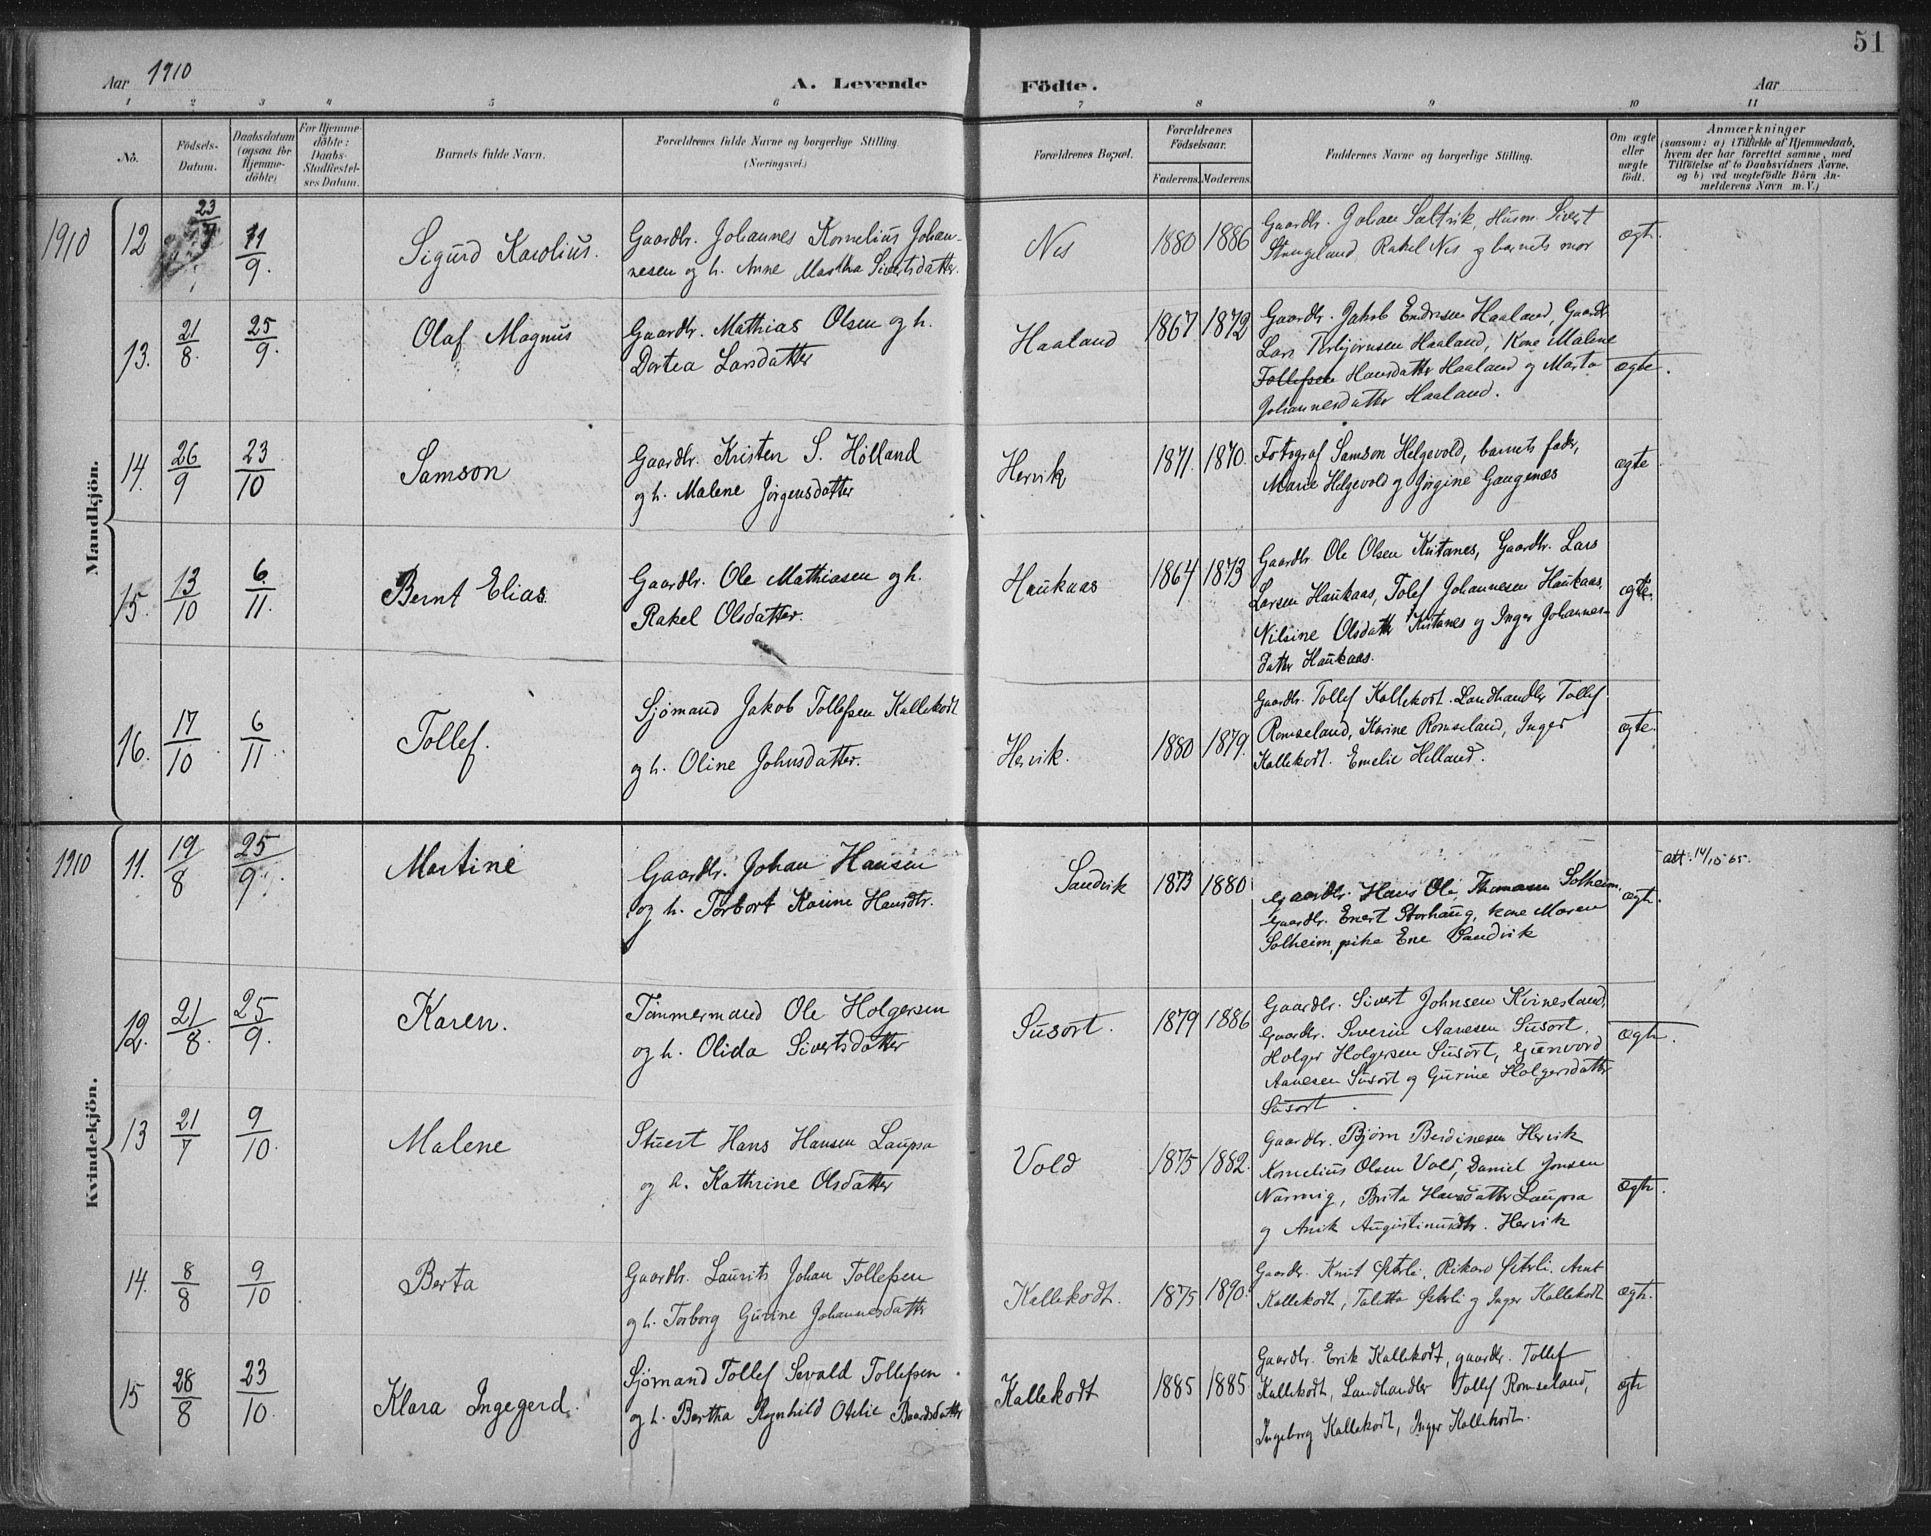 51
Aar 1910
A. Levende Födte.
Aar
1 2 3 4 5 6 7 8 9 10 11
No.
Födsels-Datum.
Daabsdatum (ogsaa for Hjemmedöbte)
For Hjemmedöbte: Daabs-Stadfæstelses Datum.
Barnets fulde Navn.
Forældrenes fulde Navne og borgerlige Stilling (Næringsvei.)
Forældrenes Bopæl.
Forældrenes Födselsaar.
Faderens. Moderens.
Faddernes Navne og borgerlige Stilling.
Om ægte eller uægte födt.
Anmærkninger
(saasom: a) i Tilfælde af Hjemmedaab, hvem der har forrettet samme, med Tilföielse af to Daabsvidners Navne, og b) ved uægtefödte Börn Anmelderens Navn m. V.)
Mandkjön.
1910 12 23/7 11/9. Sigurd Karolius.
Gaardbr. Johannes Kornelius Johan-
nesen og h. Anne Martha Sivertsdatter.
Nes 1880 1886
Gaardbr. Johan Saltvik, Husm. Sivert
Stangeland, Rakel Nes og barnets mor
ægte.
13. 21/8. 25/9. Olaf Magnus
Gaardbr. Mathias Olsen og h.
Dortea Larsdatter
Haaland 1867 1872
Gaardbr. Jakob Endresen Haaland, Gaardbr
Lars Torbjørnsen Haaland, Kone Malene
Tollefsen Hansdatter Haaland og Marta
Johannesdatter Haaland.
ægte.
14. 26/9 23/10 Samson
Gaardbr. Kristen S. Hölland
og h. Malene Jörgensdatter
Hervik 1871. 1870.
Fotograf Samson Helgevold, barnets fader,
Marie Helgevold og Jörgine Gaugenæs
ægte
15. 13/10 6/11. Bernt Elias
Gaardbr. Ole Mathiasen og h.
Rakel Olsdatter.
Haukaas 1864 1873
Gaardbr Ole Olsen Kistanes, Gaardbr. Lars
Larsen Haukaas, Tolef Johannesen Haukaas,
Nilsine Olsdatter Kistanes og Inger Johannes-
datter Haukaas.
ægte.
16. 17/10 6/11. Tollef.
Sjömand Jakob Tollefsen Kallekodt
og h. Oline Johnsdatter.
Hervik. 1880 1879.
Gaardbr. Tollef Kallekodt. Landhandler Tollef
Romseland, Karine Romseland, Inger
Kallekodt. Emelie Helland.
ægte.
Kvindekjön.
1910 11. 19/8 25/9. Martine
Gaardbr. Johan Hansen
og h. Torbort Karine Hansdtr.
Sandvik 1873 1880
Gaardbr. Hans Ole Thomasen Solheim,
Gaardbr. Enert Storhaug, kone Maren
Solheim, pike Ene Sandvik
ægte.
att. 14/10 65.
12. 21/8. 25/9. Karen.
Tömmermand Ole Holgersen
og h. Olida Sivertsdatter
Susort. 1879 1886
Gaardbr. Sivert Johnsen Kvinesland,
Gaardbr. Severin Aanesen Susort.
Holger Holgersen Susort, Gunvord
Aanesen Susort og Gurine Holgersdatter
Susort.
ægte.
13 21/7 9/10. Malene
Stuert Hans Hansen Laupsa
og h. Kathrine Olsdatter
Vold 1875 1882.
Gaardbr. Bjørn Berdinesen Hervik
Kornelius Olsen Vold, Daniel Jonsen
Narvig, Brita Hansdatter Laupsa
og Anik Augustinusdtr. Hervik
ægte.
14. 8/8 9/10 Berta
Gaardbr. Laurits Johan Tollefsen
og h. Torborg Gurine Johannesdatter
Kallekodt. 1875 1890.
Gaardbr. Knut Østrli, Rikard Østrli. Arnt
Kallekodt, Taletta Østrli og Inger Kallekodt
ægte.
15 28/8 23/10. Klara Ingegerd.
Sjömand Tollef Sevald Tollefsen
og h. Bertha Ragnhild Otelie Baardsdatter
Kallekodt 1885 1885.
Gaardbr. Erik Kallekodt, gaardbr. Tollef
Kallekodt, Landhandler Tollef Romseland,
Ingeborg Kallekodt, Inger Kallekodt.
ægte